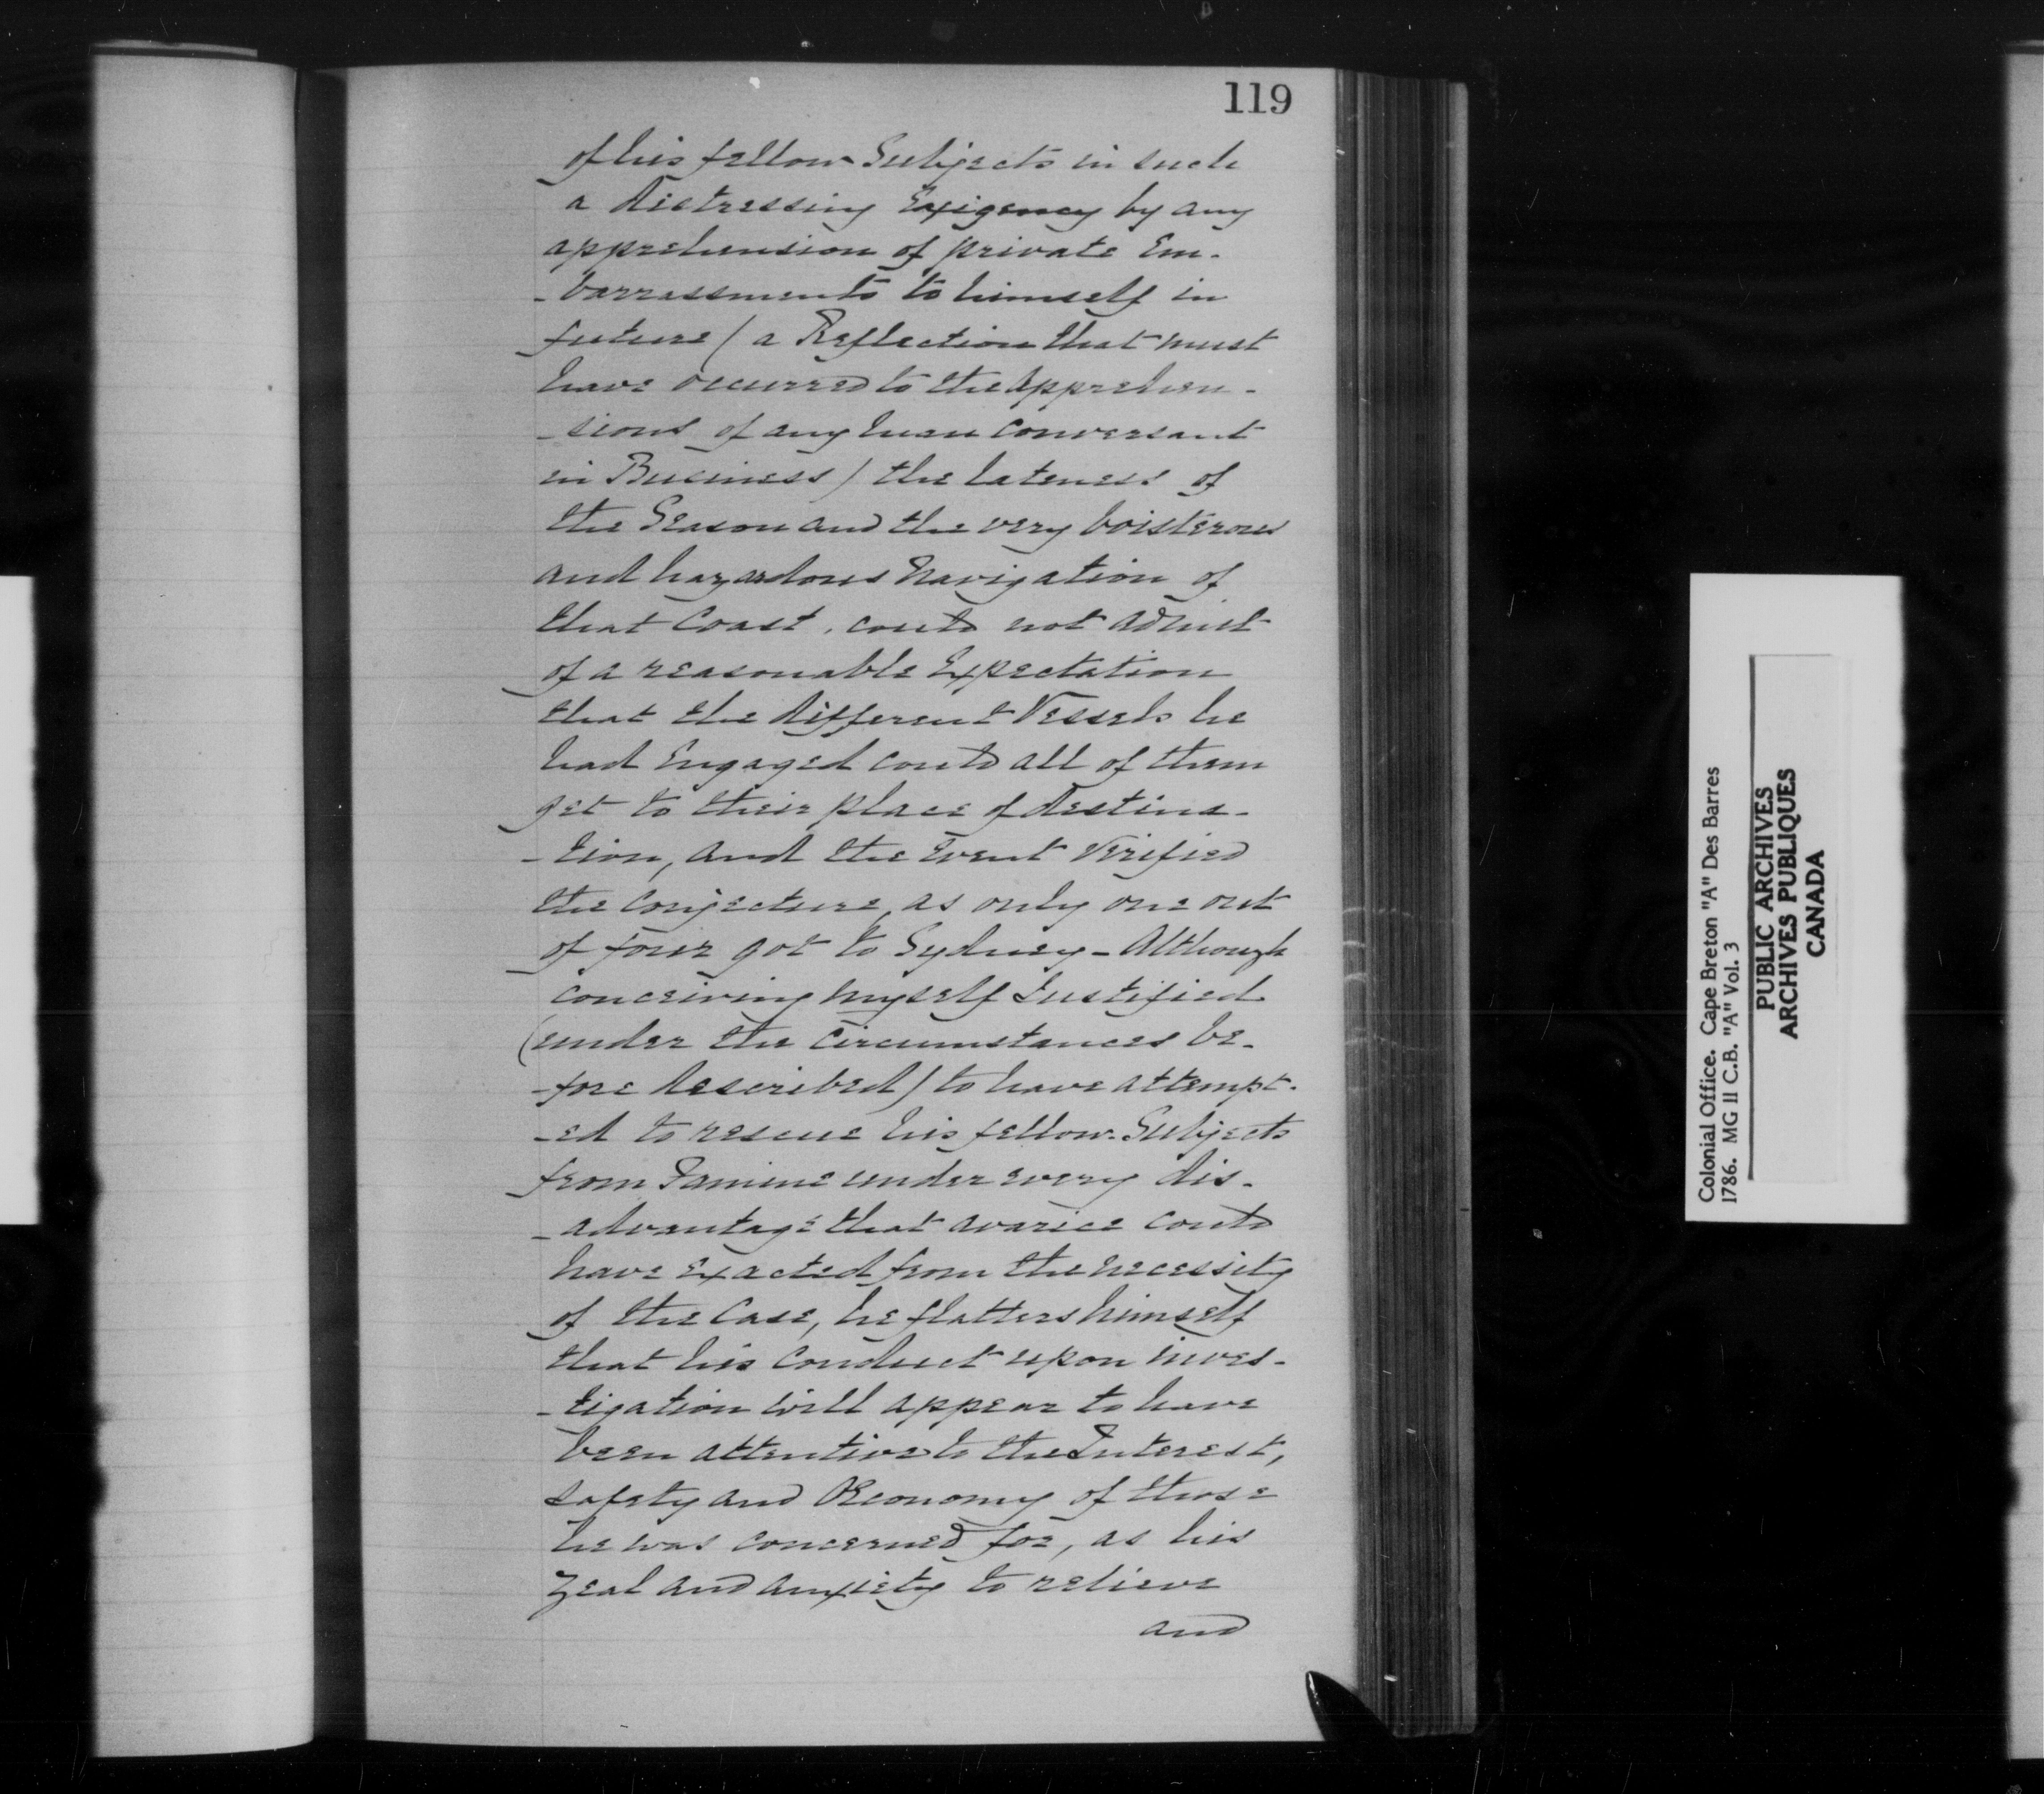 119
of his fellow Subjects in such
a distressing Exigency by any
apprehension of private Em-
-barrassments to himself in
future (a Reflection that must
have occurred to the Apprehen-
-sions of any man conversant
in Business) the lateness of
the Season and the very boisterous
and hazardous Navigation of
that Coast, could not admit
of a reasonable Expectation
that the different Vessels he
had Engaged could all of them
get to their place of destina-
-tion, and the Event Verified
the Conjecture, as only one out
of four got to Sydney - Although
conceiving myself Justified
(under the Circumstances be-
-fore described) to have attempt-
-ed to rescue his fellow-Subjects
from Famine under every dis-
-advantage that avarice could
have Exacted from the necessity
of the Case, he flatters himself
that his Conduct upon inves-
-tigation will appear to have
been attentive to the Interest,
safety and Œconomy of those
he was concerned for, as his
Zeal and anxiety to relieve
and
Colonial Office. Cape Breton "A" Des Barres
1786. MG 11 C.B. "A" Vol. 3
PUBLIC ARCHIVES
ARCHIVES PUBLIQUES
CANADA